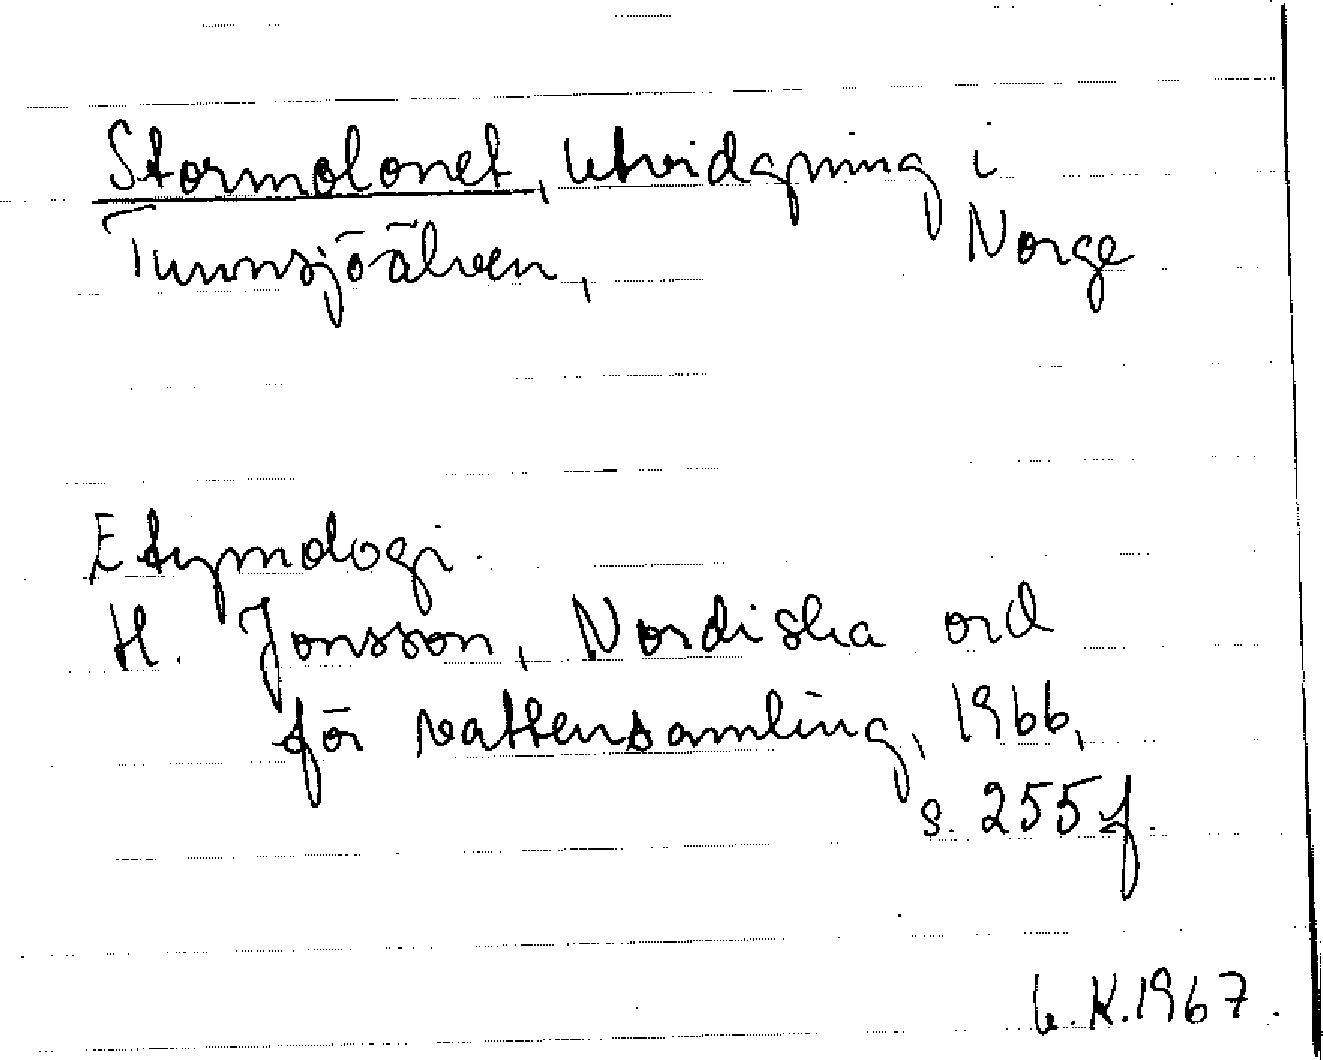 Stormolonet, utvidgning i
Tunnsjöälven, Norge
Etymologi.
H. Jonsson, Nordiska ord
för vattensamling, 1966,
s. 255 f.
U.K. 1967.